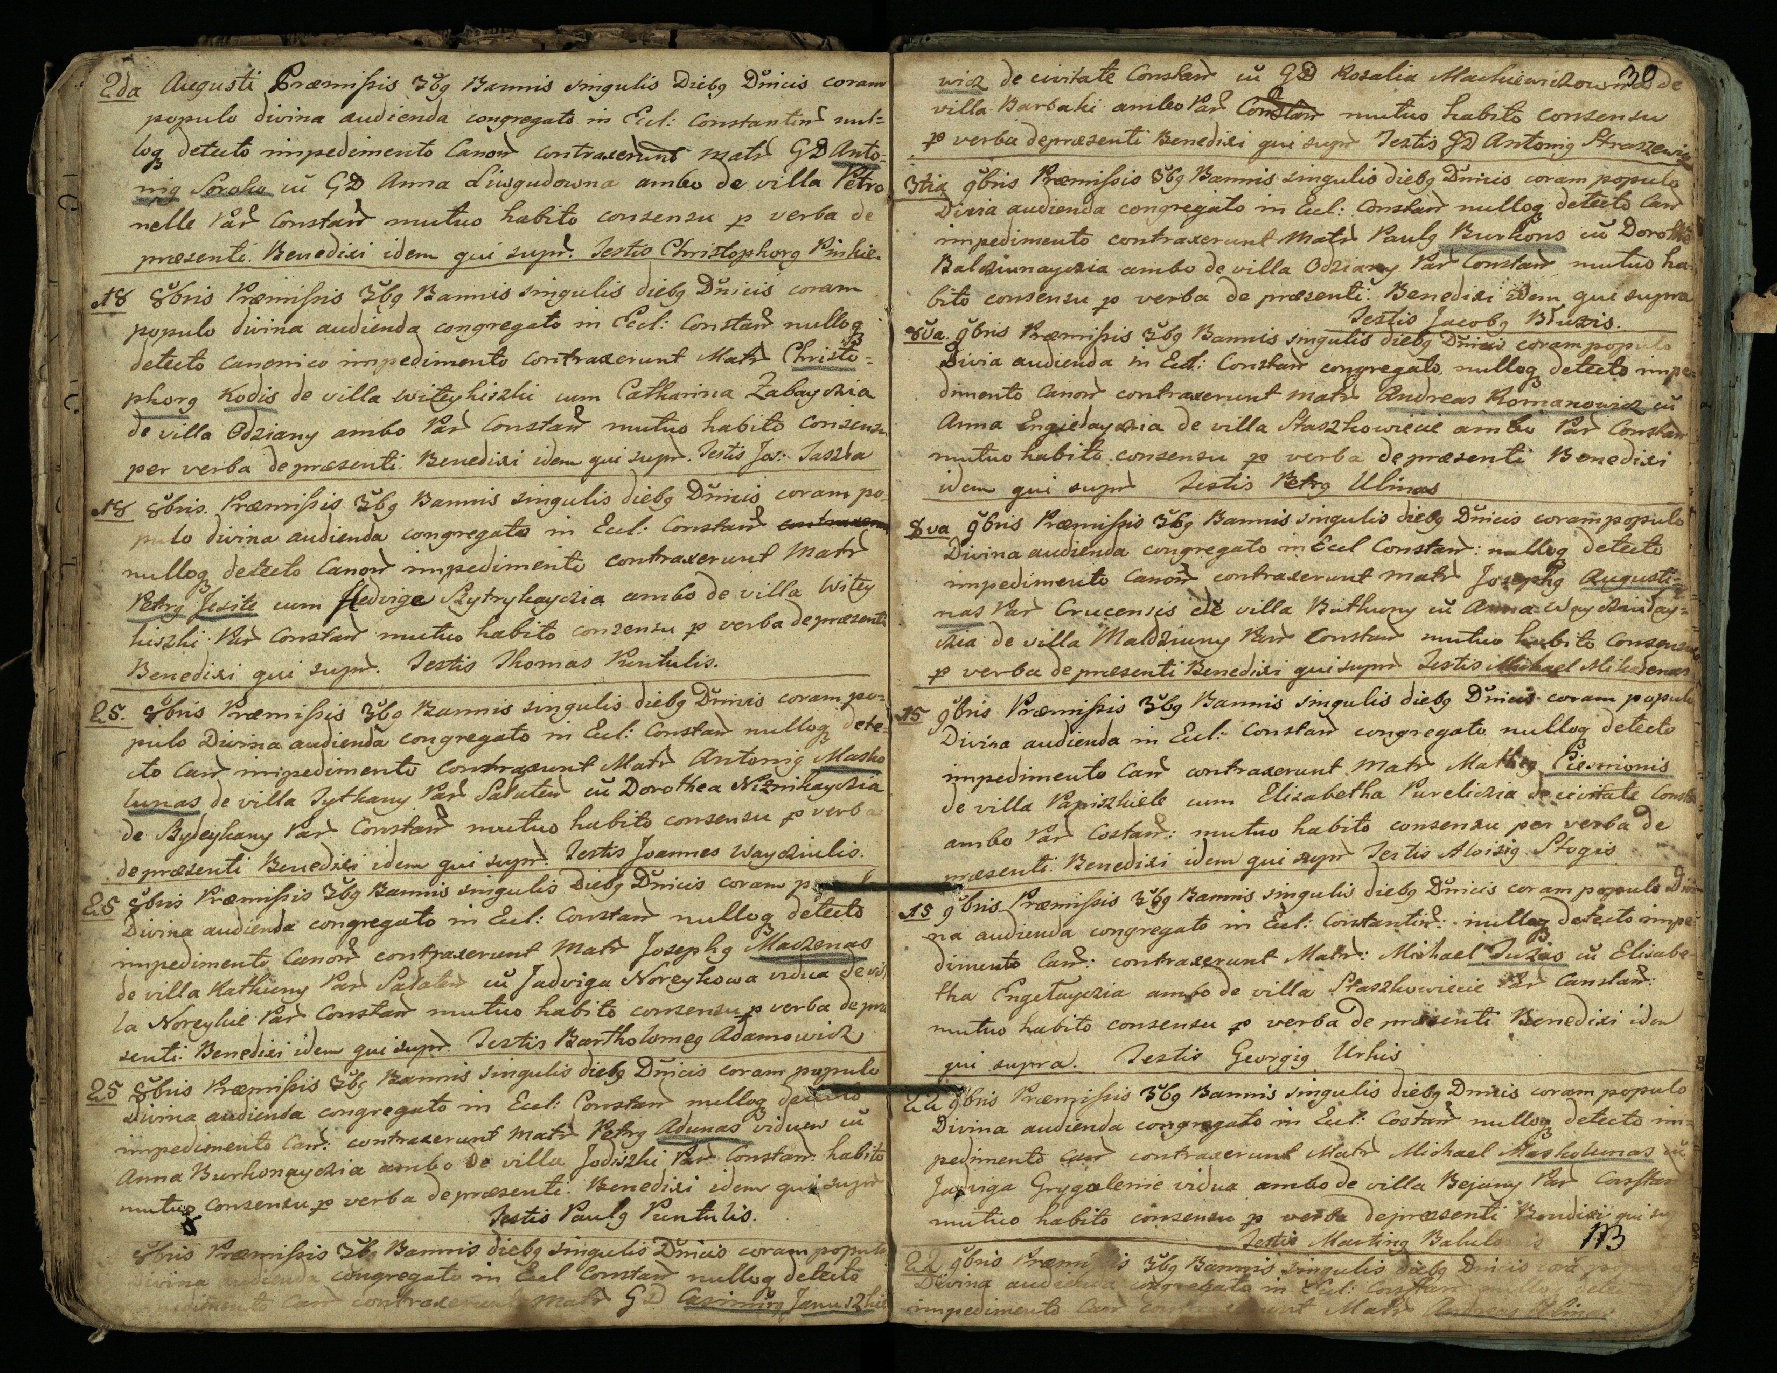 2da Augusti Præmissis 3bq Bannis singulis Diebq Dnicis coram
populo divina audienda congregato in Eccl: Constantin nul-
loq detecto impedimento Canon contraxerunt Matr GD Anto-
niq Soroka cu GD Anna Liwgudowna ambo de villa Petro
nelle Par Constan mutuo habito consensu p verba de
præsenti. Benedixi idem qui supr. Testis Christophorq Pinkie
18 8bris Præmissis 3bq Bannis singulis diebq Dnicis coram
populo divina audienda congregato in Eccl: Constan nulloq
detecto canonico impedimento contraxerunt Matr Christo-
phorq Kodis de villa Witeykiszki cum Catharina Zabayczia
de villa Odziany ambo Par Constan mutuo habito consensu
per verba de præsenti. Benedixi idem qui supr. Testis Jos: Saszka
18 8bris. Præmissis 3bq Bannis singulis diebq Dnicis coram po-
pulo divina audienda congregato in Eccl: Constan
nulloq detecto Canon impedimento contraxerunt Matr
Petrq Jesite cum Hedvige Skytrykayczia ambo de villa Witey
kiszki Par Constan mutuo habito consensu p verba de præsenti
Benedixi qui supr. Testis Thomas Puntulis.
25. 8bris Præmissis 3bq Bannis singulis diebq Dnicis coram po-
pulo Divina audienda congregato in Eccl: Constan nulloq dete-
cto Can impedimento contraxerunt Matr Antoniq Masko
lunas de villa Tytkany Par Salaten cu Dorothea Niznikayczia
de Bydeykany Par Constan mutuo habito consensu p verba
de præsenti Benedixi idem qui supr. Testis Joannes Wayciulis.
25 8bris Præmissis 3bq Bannis singulis Diebq Dnicis coram
Divina audienda congregato in Eccl: Constan nulloq detecto
impedimento Canon contraxerunt Matr Josephq Maczenas
de villa Katkuny Par Salaten cu Jadviga Noreykowa vidua de vil
la Noreykie Par Constan mutuo habito consensu p verba de præ
senti Benedixi idem qui supr Testis Bartholomeq Adamowicz
25 8bris Præmissis 3bq Bannis singulis diebq Dnicis coram populo
Divina audienda congregato in Eccl: Constan nulloq detecto
impedimento Can: contraxerunt Matr Petrq Adunas viduus cu
Anna Burkonayczia ambo de villa Jodiszki Par Constan habito
mutuo consensu p verba de præsenti. Benedixi idem qui supr
Testis Paulq Puntulis.
8bris Præmissis 3bq Bannis diebq singulis Dnicis coram populo
divina audienda congregato in Eccl Constan nulloq detecto
impedimento Can contraxerunt Matr GD Casimirq
30
wicz de civitate Constan cu GD Rosalia Mackiewiczowna de
villa Barbaki ambo Par Constan mutuo habito consensu
p verba de præsenti Benedixi qui supr Testis GD Antoniq Straszewicz
3tia 9bris Præmissis 3bq Bannis singulis diebq Dnicis coram populo
Divia audienda congregato in Eccl: Constan nulloq detecto Can
impedimento contraxerunt Matr Paulq Burkons cu Dorothea
Balziunayczia ambo de villa Odziany Par Constan mutuo ha-
bito consensu p verba de præsenti. Benedixi idem qui supra
Testis Jacobq Bluzis.
8va. 9bris Præmissis 3bq Bannis singulis diebq Dnicis coram populo
Divia audienda in Eccl: Constan congregato nulloq detecto impe-
dimento Canon contraxerunt Matr Andreas Romanowicz cu
Anna Engieldayczia de villa Staszkowicie ambo Par Constan
mutuo habito consensu p verba de præsenti Benedixi
idem qui supr Testis Petrq Ulinas
8va 9bris Præmissis 3bq Bannis singulis diebq Dnicis coram populo
Divina audienda congregato in Eccl Constan: nulloq detecto
impedimento Canon contraxerunt Matr Josephq Augusti-
nas Par Crucensis de villa Butkuny cu Anna
czia de villa Maldziuny Par Constan mutuo habito consensu
p verba de præsenti Benedixi qui supr Testis Michael Mikodenas
15 9bris Præmissis 3bq Bannis singulis diebq Dnicis coram populo
Divina audienda in Eccl: Constan congregato nulloq detecto
impedimento Can contraxerunt Matr Mathq Piesnionis
de villa Papiszkiele cum Elisabetha Pureliczia de civitate Constan
ambo Par Costan: mutuo habito consensu per verba de
præsenti. Benedixi idem qui supr Testis Aloisiq Stogis
15 9bris Præmissis 3bq Bannis singulis diebq Dnicis coram populo Divi-
na audienda congregato in Eccl: Constantin: nulloq detecto impe-
dimento Can: contraxerunt Matr: Michael Tuzas cu Elisabe-
tha Engetayczia ambo de villa Staszkowicie Par Canstan:
mutuo habito consensu p verba de præsenti Benedixi idem
qui supra. Testis Georgiq Urkis
22 9bris Præmissis 3bq Bannis singulis diebq Dnicis coram populo
Divina audienda congregato in Eccl: Costan nulloq detecto im-
pedimento Can contraxerunt Matr Michael Maskolunas cu
Jadviga Grygalenie vidua ambo de villa Bejany Par Constan
mutuo habito consensu p verba de præsenti Benedixi qui su
Testis Martinq 113
22 9bris Præmissis 3bq Bannis singulis diebq Dnicis
Divina audienda congregato in Eccl: Constan nulloq
impedimento Can Matr Andreas Ulinas